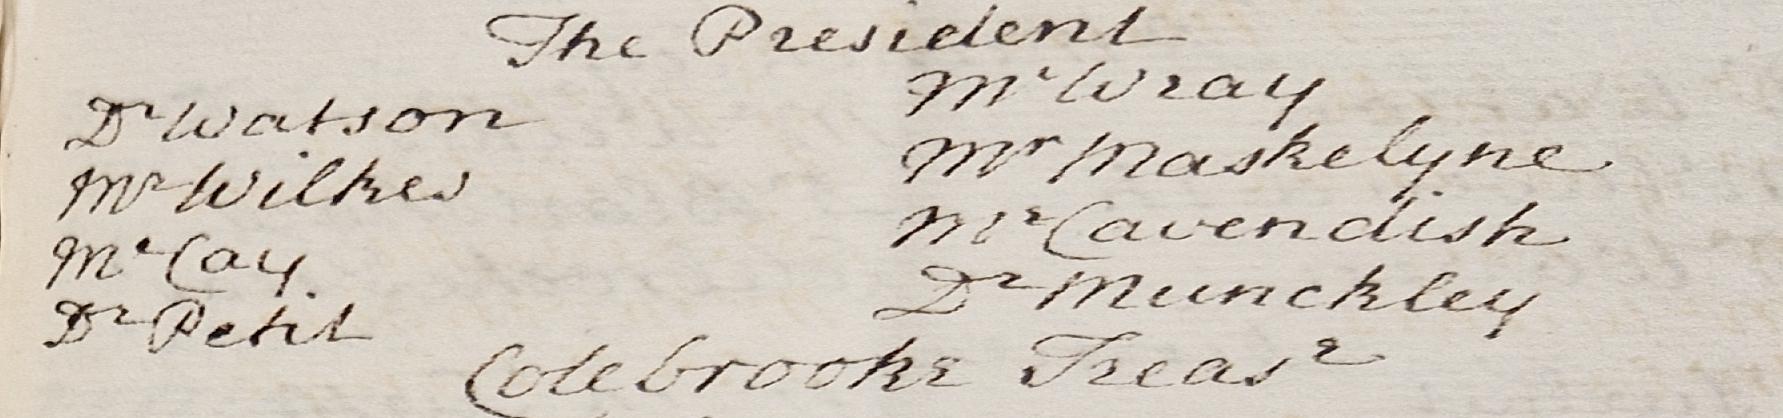 The President
Dr Watson
Mr Wilkes
Mr Cay
Dr Petit
Mr Wray
Mr Maskelyne
Mr Cavendish
Dr Munckley
Colebrooke Treasr